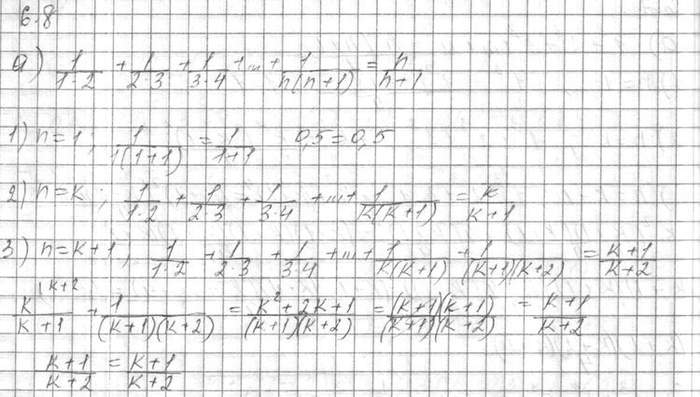 6.8
a) 1/(1·2) + 1/(2·3) + 1/(3·4) + ... + 1/(n(n+1)) = n/(n+1)
1) n=1 1/(1(1+1)) = 1/(1+1) 0,5=0,5
2) n=k; 1/(1·2) + 1/(2·3) + 1/(3·4) + ... + 1/(k(k+1)) = k/(k+1)
3) n=k+1; 1/(1·2) + 1/(2·3) + 1/(3·4) + ... + 1/(k(k+1)) + 1/((k+1)(k+2)) = (k+1)/(k+2)
k/(k+1) |k+2 + 1/((k+1)(k+2)) = (k²+2k+1)/((k+1)(k+2)) = ((k+1)(k+1))/((k+1)(k+2)) = (k+1)/(k+2)
(k+1)/(k+2) = (k+1)/(k+2)